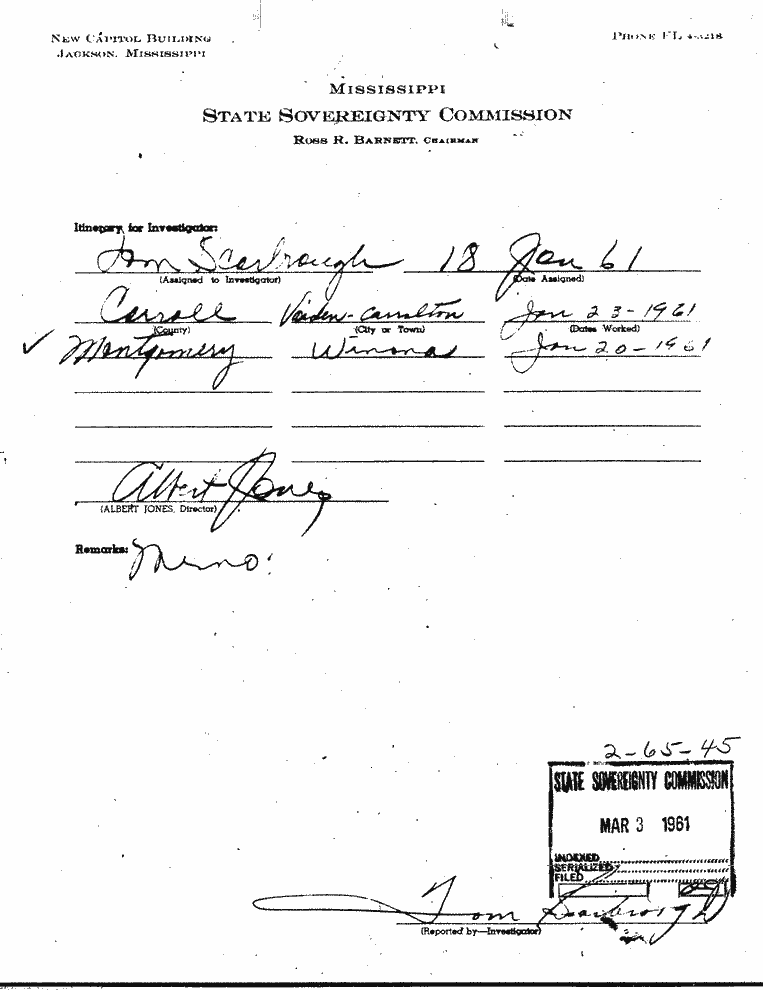 NEW CAPITOL BUILDING
JACKSON, MISSISSIPPI
PHONE FL 4-3218
MISSISSIPPI
STATE SOVEREIGNTY COMMISSION
ROSS R. BARNETT, CHAIRMAN
Itinerary for Investigator:
Tom Scarbrough 18 Jan 61
(Assigned to Investigator) (Date Assigned)
Carroll Vaiden-Carrollton Jan 23-1961
(County) (City or Town) (Dates Worked)
✓ Montgomery Winona Jan 20-1961
Albert Jones
(ALBERT JONES, Director)
Remarks: Memo:
2-65-45
STATE SOVEREIGNTY COMMISSION
MAR 3 1961
INDEXED
SERIALIZED
FILED
Tom Scarbrough
(Reported by—Investigator)